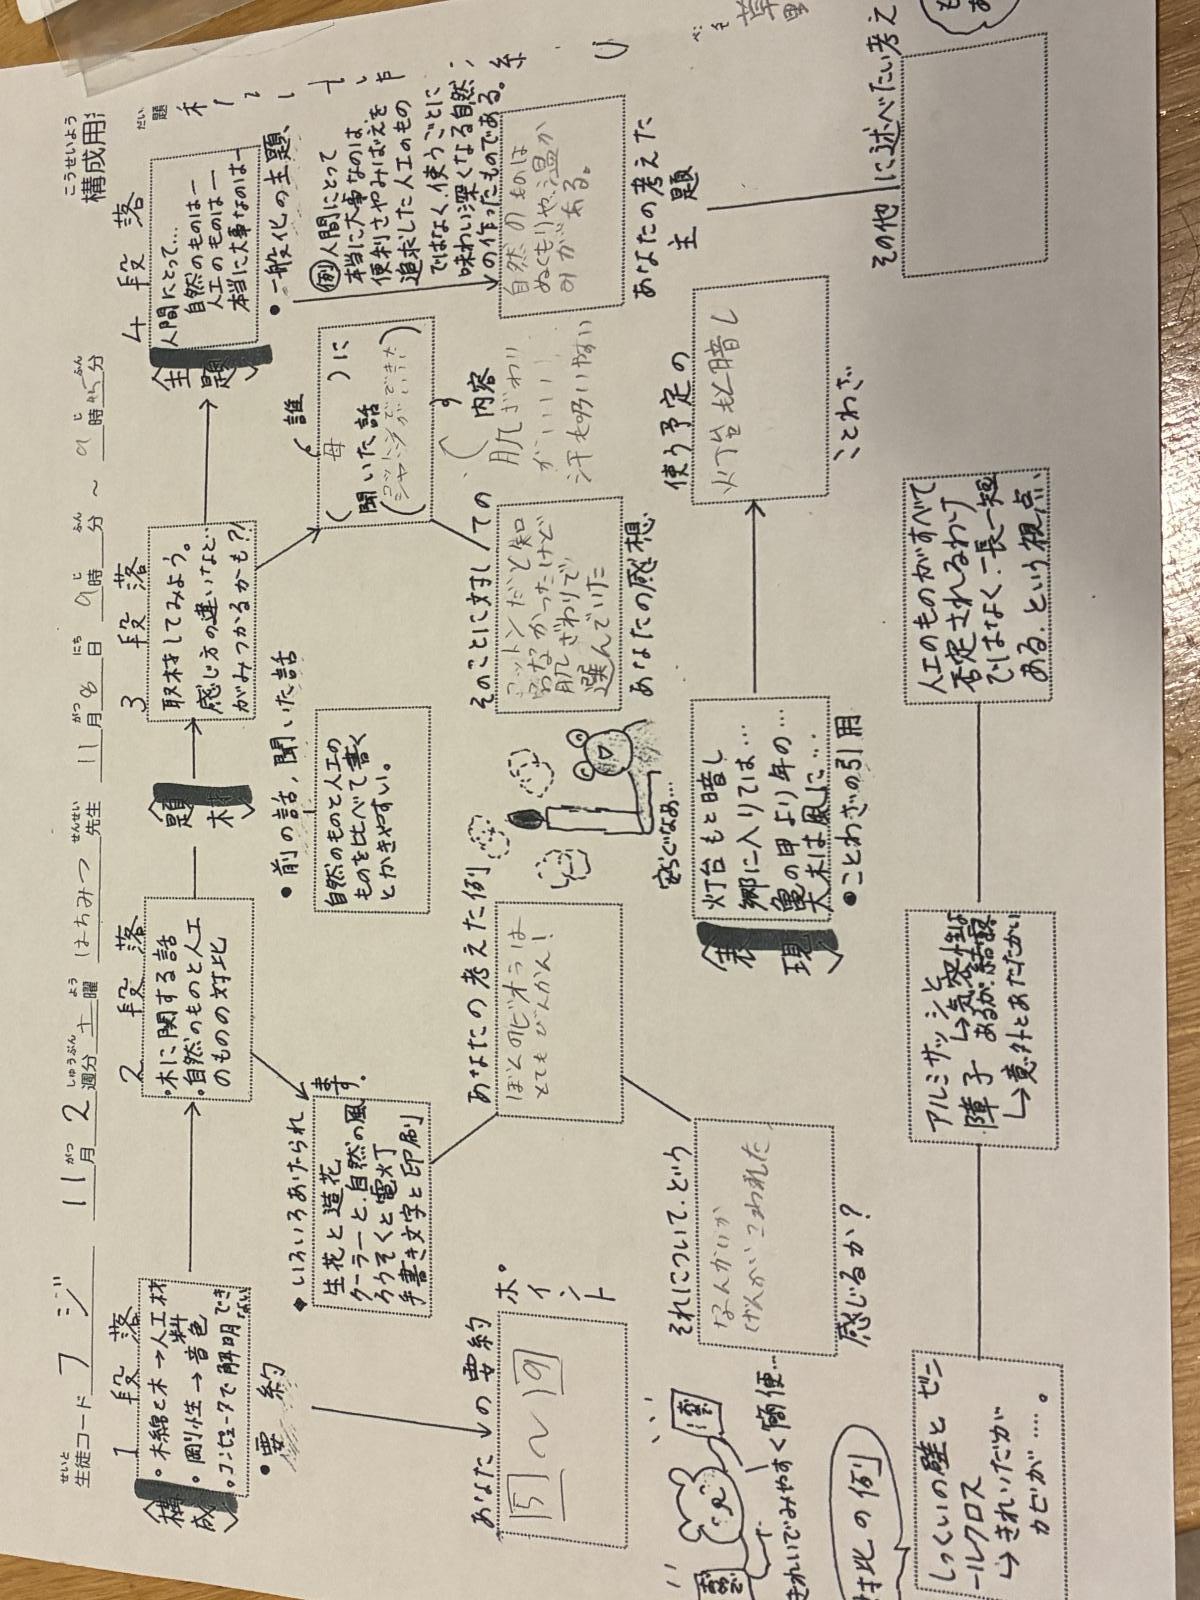 こうせいよう
構成用
せいと
生徒コード フジ
11月2週分 土曜
はちみつ先生
11月8日 9時 分～9時45分
1段落
2段落
3段落
4段落
構成
・木綿と木→人工材料
・剛性→音色
・コンピュータで解明できない
・木に関する話
・自然のものと人工
のものの対比
題材
取材してみよう。
感じ方の違いなど
がみつかるかも?!
主題
人間にとって…
自然のものは―
人工のものは―
本当に大事なのは―
・要約
あなたの要約
ポイント
5～19
・いろいろあげられ
ます.
生花と造花
クーラーと自然の風
ろうそくと電灯
手書き文字と印刷
あなたの考えた例
ぼくのビオラは
とてもびんかん!
それについてどう
感じるか?
なんかいか
げんがこわれた
・前の話, 聞いた話
自然のものと人工の
ものを比べて書く
とかきやすい。
誰
(母)に
聞いた話
(コットンでできた
シャツがいい)
内容
肌ざわり
がいい!!!
汗も吸いやすい
そのことに対しての
あなたの感想
コットンだと知
らなかったけど
肌ざわりで
選んでいた
・一般化の主題
例 人間にとって
本当に大事なのは、
便利さやみばえを
追求した人工のもの
ではなく、使うごとに
味わい深くなる自然
の作ったものである。
自然のものは
ぬくもりや、温か
みがある。
あなたの考えた
主題
表現
灯台もと暗し
郷に入りては…
亀の甲より年の…
大木は風に…
・ことわざの引用
使う予定の
ことわざ
灯台もと暗し
安らぐなぁ…
その他に述べたい考え
きれいでみやすく簡便…
対比の例
しっくいの壁とビニ
ールクロス
→きれいだが
カビが……。
アルミサッシと
障子 →気密性は
あるが、結露
→意外とあたたかい
人工のものがすべて
否定されるわけ
ではなく、一長一短
ある.という視点.